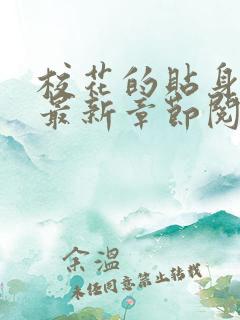 校花的贴身
最新章节阅
余温
未经同意禁止转载